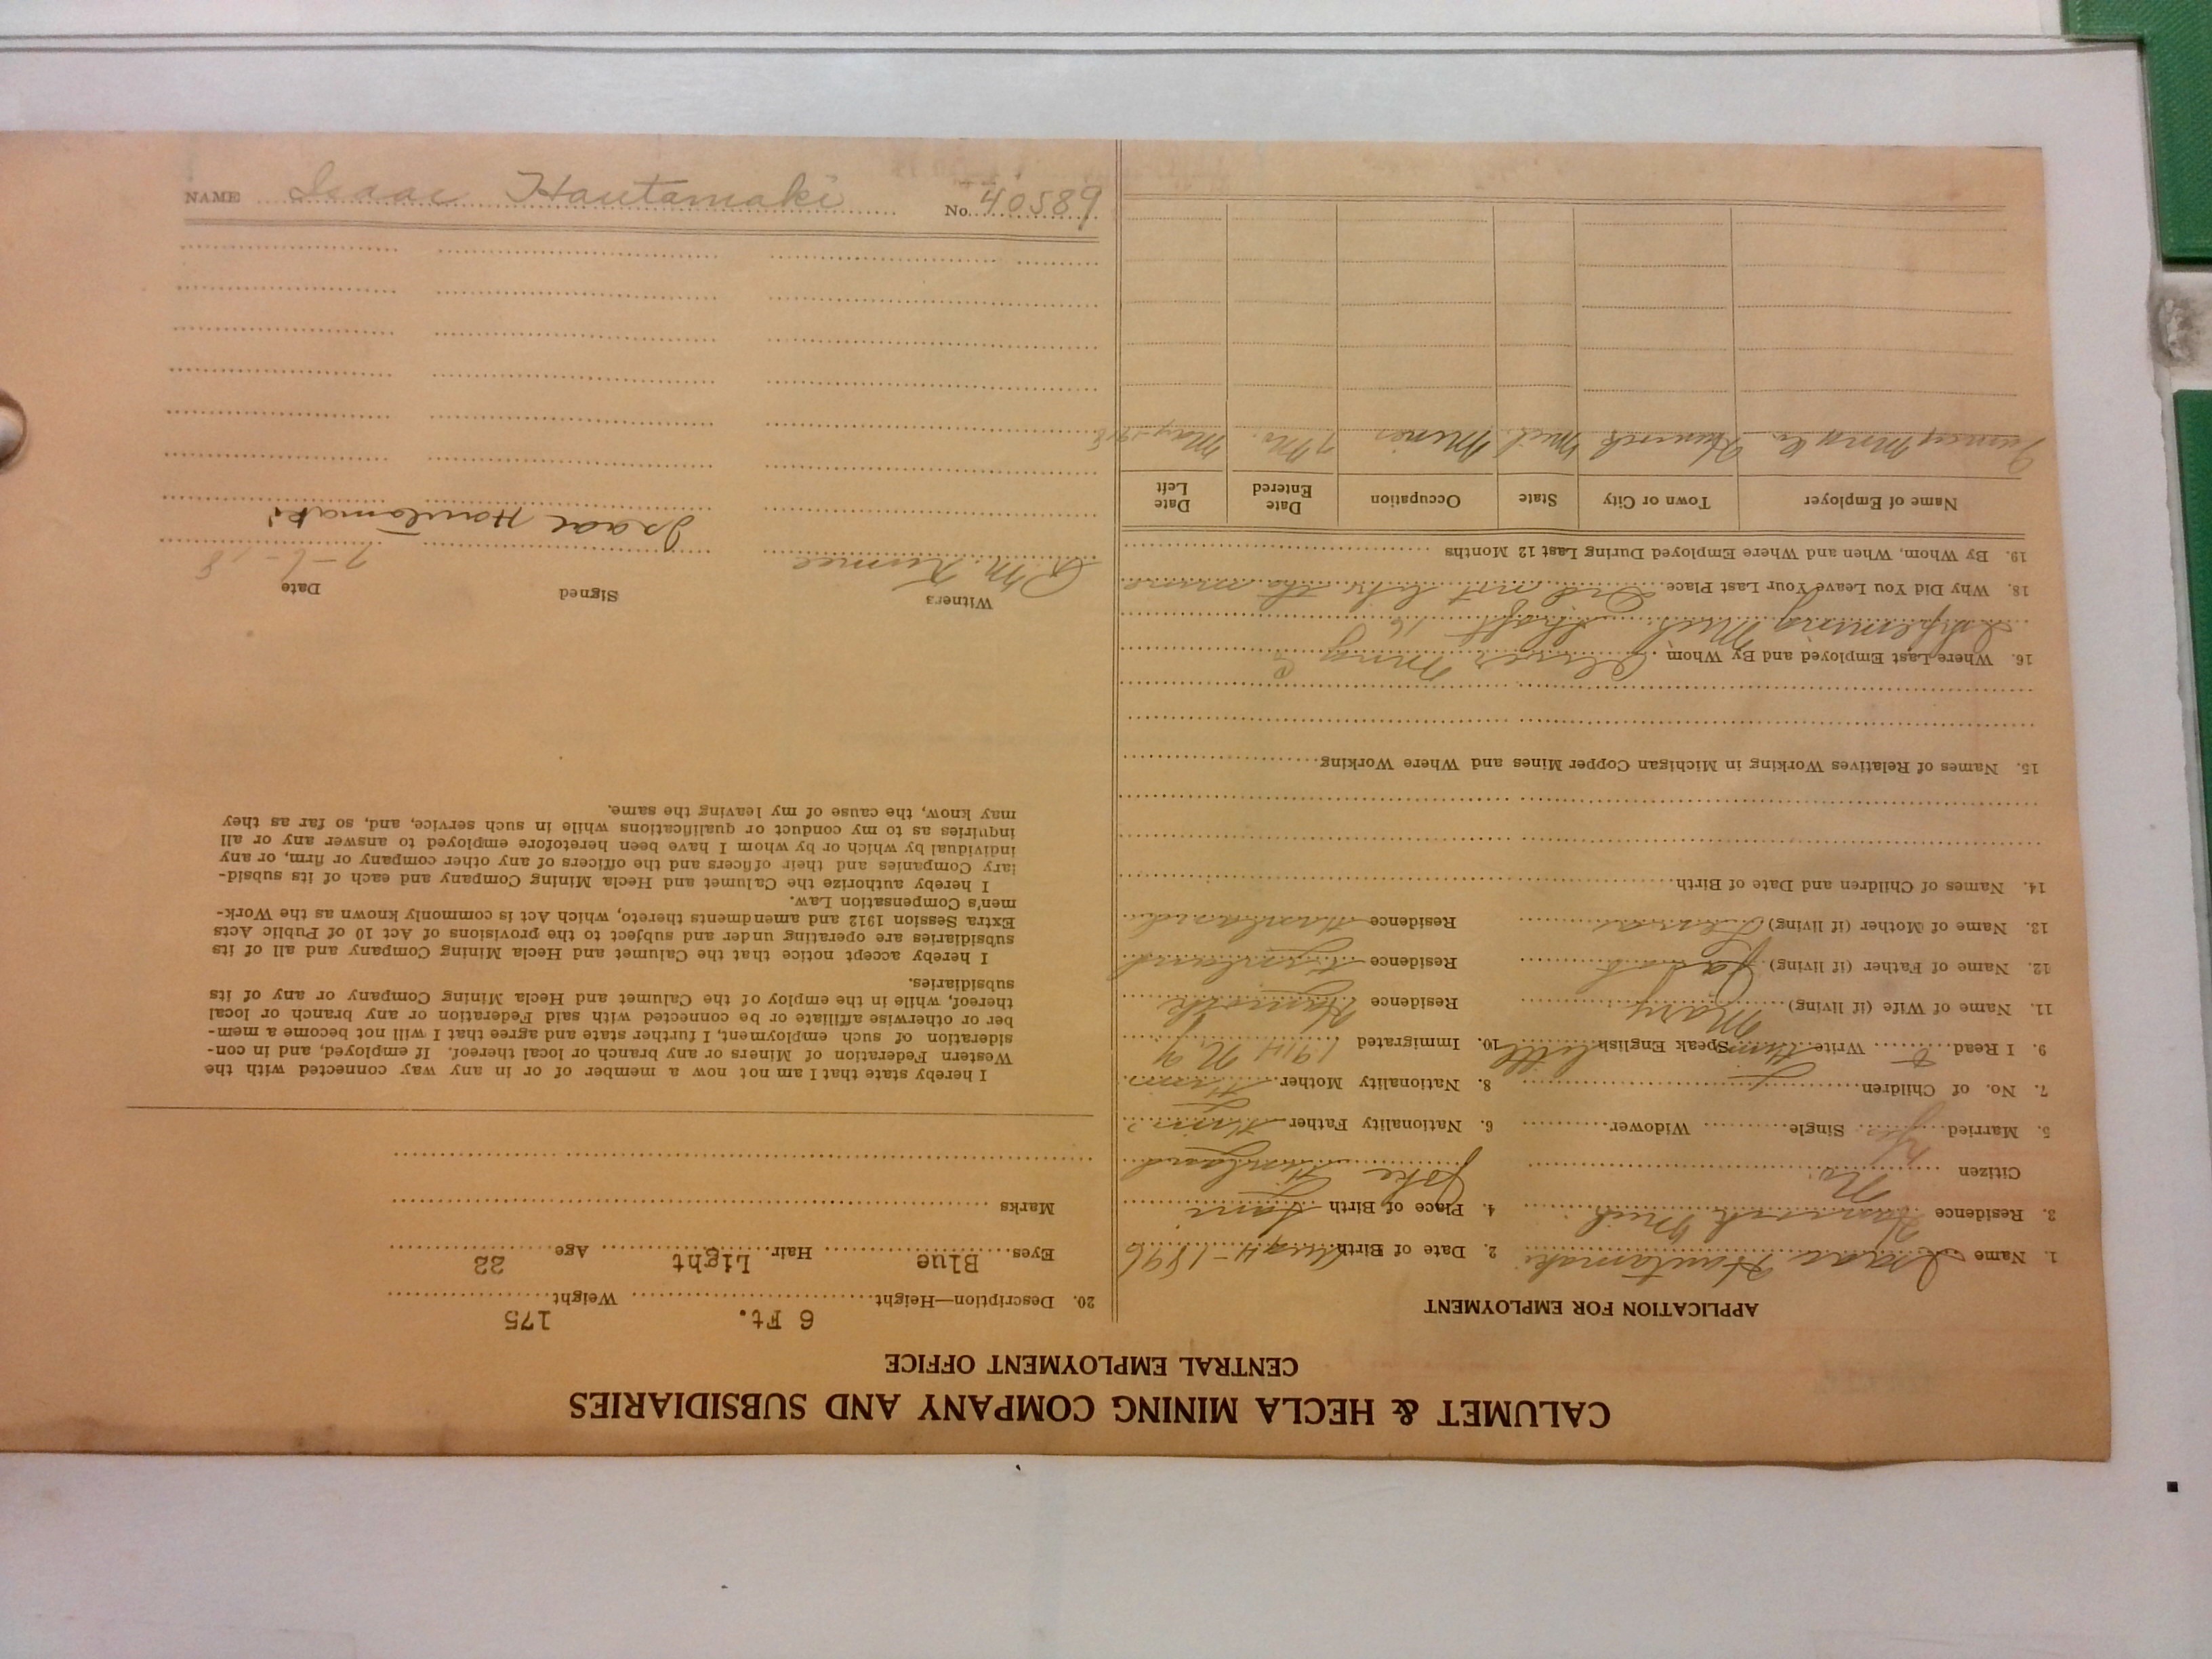 CALUMET & HECLA MINING COMPANY AND SUBSIDIARIES
CENTRAL EMPLOYMENT OFFICE
APPLICATION FOR EMPLOYMENT
1. Name Isaac Hautamaki 2. Date of Birth Aug 4-1896
3. Residence Hancock Mich 4. Place of Birth
Citizen No Finland
5. Married Yes Single Widower 6. Nationality Father Finn
7. No. of Children 8. Nationality Mother Finn
9. I Read Write Finn Speak English little 10. Immigrated 1914 N.Y
11. Name of Wife (if living) Mary Residence Hancock
12. Name of Father (if living) Jacob Residence Finland
13. Name of Mother (if living) Residence Finland
14. Names of Children and Date of Birth
15. Names of Relatives Working in Michigan Copper Mines and Where Working
16. Where Last Employed and By Whom Oliver Mining Co
Ishpeming Mich Shaft 16
18. Why Did You Leave Your Last Place Did not like the mine
19. By Whom, When and Where Employed During Last 12 Months
Name of Employer Town or City State Occupation Date Entered Date Left
Quincy Mining Co. Hancock Mich. Miner 7 Mo. May-1918
20. Description—Height 6 Ft. Weight 175
Eyes Blue Hair Light Age 22
Marks
I hereby state that I am not now a member of or in any way connected with the
Western Federation of Miners or any branch or local thereof. If employed, and in con-
sideration of such employment, I further state and agree that I will not become a mem-
ber or otherwise affiliate or be connected with said Federation or any branch or local
thereof, while in the employ of the Calumet and Hecla Mining Company or any of its
subsidiaries.
I hereby accept notice that the Calumet and Hecla Mining Company and all of its
subsidiaries are operating under and subject to the provisions of Act 10 of Public Acts
Extra Session 1912 and amendments thereto, which Act is commonly known as the Work-
men's Compensation Law.
I hereby authorize the Calumet and Hecla Mining Company and each of its subsid-
iary Companies and their officers and the officers of any other company or firm, or any
individual by which or by whom I have been heretofore employed to answer any or all
inquiries as to my conduct or qualifications while in such service, and, so far as they
may know, the cause of my leaving the same.
Witness Signed Date
Isaac Hautamaki
NAME Isaac Hautamaki No. 40589